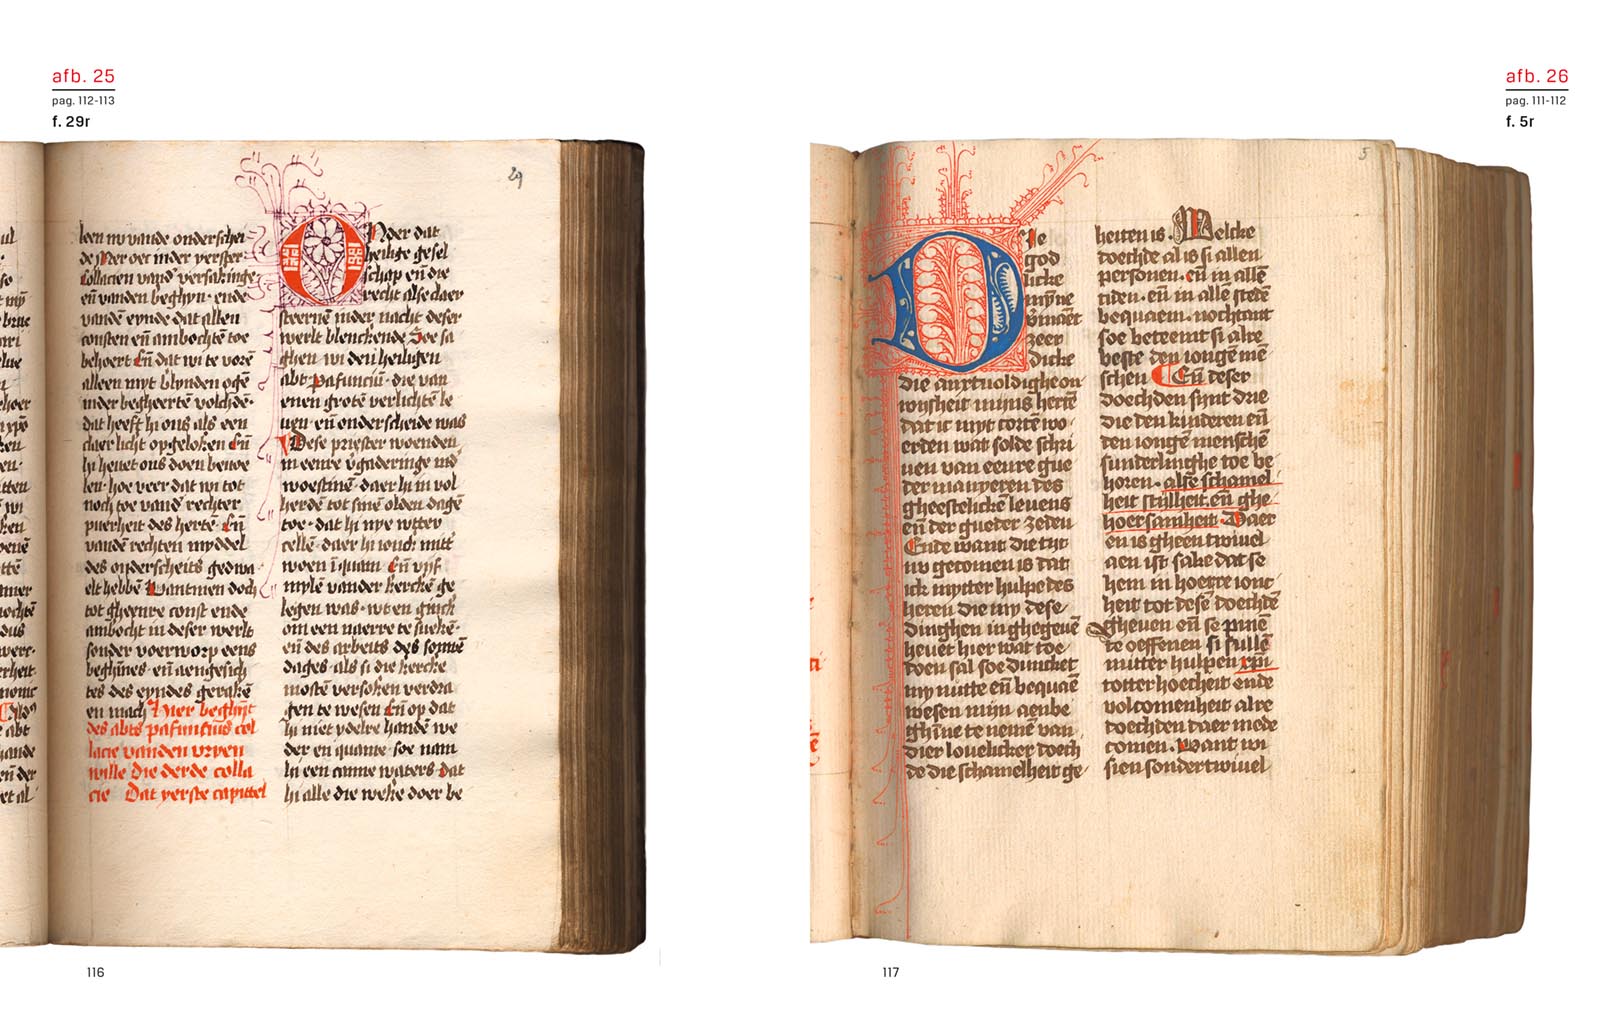 afb. 25
pag. 112-113
f. 29r
29
leen nv vande onderschei
de Mer oec inder yerster
collacien vand' versakinge
en̄ vanden beghyn· ende
vandē eynde dat allen
consten en̄ ambochtē toe
behoert En̄ dat wi te vorē
alleen myt blynden ogē
inder begheertē volchdē·
dat heeft hi ons als een
claer licht opgeloken En̄
hi heuet ons doen bekoe
len· hoe veer dat wi tot
noch toe vand rechter
puerheit des hertē· En̄
vandē rechten myddel
des onderscheits gedwa
elt hebbē Wantmen doch
tot gheenre const ende
ambocht in deser werlt
sonder voerworp eens
beghīnes· en̄ aengesich
tes des eyndes gerakē
en mach Hier beghīt
des abts pafuncius col
lacie vanden vryen
wille Die derde colla
cie Dat yerste capittel
ONder dat
heilige gesel
schap en̄ die
recht alse claer
steernē inder nacht deser
werlt blenckende Soe sa
ghen wi den heiligen
abt pafunciū· die van
enen grotē verlichtē le
uen· en̄ onderscheide was
Dese priester woenden
in eenre v'gaderinge ind'
woestinē· daer hi in vol
herdē tot sinē olden dagē
toe· dat hi nye wtter
cellē· daer hi ionck mitt
woen ī quam En̄ vijf
mylē vander kerckē ge
legen was· wten ginck
om een naerre te suekē·
en̄ des arbeits des sonnē
dages· als si die kercke
mostē versoken verdra
gen te wesen En̄ op dat
hi niet ydelre handē we
der en quame· soe nam
hi een canne waters· dat
hi alle die weke doer be
116
afb. 26
pag. 111-112
f. 5r
5
DIe
god
licke
mȳne
v'maēt
zeer
dicke
die anxtuoldigheon
wijsheit mijns hertē
dat ic myt cortē wo
erden wat solde schri
uen van eenre gue
der manyeren des
gheestelickē leuens
en̄ der gueder zeden
Ende want die tijt
nv gecomen is dat
ick mytter hulpe des
heren die my dese
dinghen in ghegeuē
heuet hier wat toe
doen sal soe duncket
my nutte en̄ bequaē
wesen mijn aenbe
ghīne te nemē van
dier louelicker doech
de die schamelheit ge
heiten is· Welcke
doechde al is si allen
personen· en̄ in allē
tiden· en̄ in allē stedē
bequaem· nochtant
soe beteemt si alre
beste den iongē mē
schen En̄ deser
doechden sijnt drie
die den kinderen en̄
den iongē menschē
sunderlinghe toe be
horen· alse schamel
heit stillheit en̄ ghe
hoersamheit Daer
en is gheen twiuel
aen ist sake dat se
hem in hoerre ionc
heit tot desē doechdē
gheuen en̄ se pinē
te oeffenen si sullē
mitter hulpen xp̄i
totter hoecheit ende
volcomenheit alre
doechden daer mede
comen· Want wi
sien sonder twiuel
117